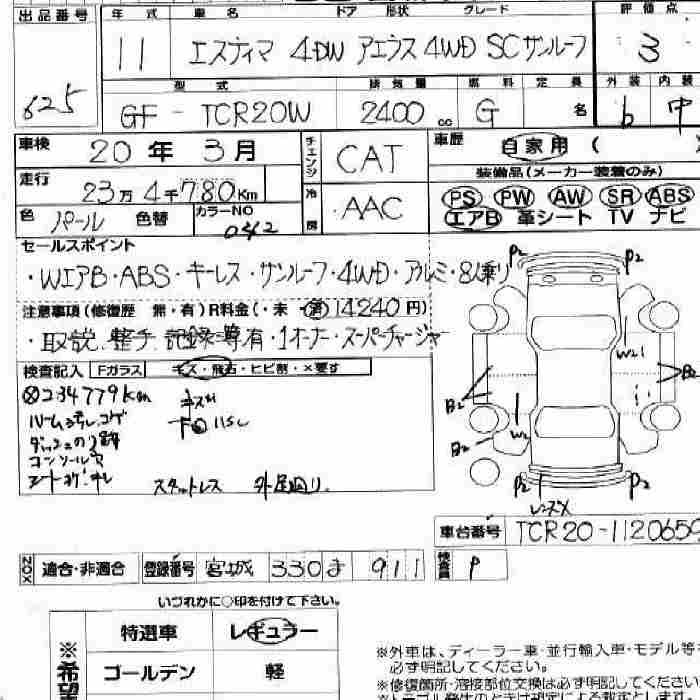 出品番号 年式 車名 ドア 形状 グレード 評価点
625 11 エスティマ 4DW アエラス 4WD SC サンルーフ 3
型式 排気量 燃料 定員 外装 内装
GF - TCR20W 2400 cc G 名 b 中
車検 20年3月 チェンジ CAT 車歴 自家用 (
装備品(メーカー装着のみ)
走行 23万4千780Km 冷房 AAC PS PW AW SR ABS
色 パール 色替 カラーNO エアB 革シート TV ナビ
セールスポイント
・WエアB・ABS・キーレス・サンルーフ・4WD・アルミ・8人乗り
注意事項(修復歴 無・有)R料金(・未・済)14240円)
・取説、整手、記録簿有・1オーナー・スーパーチャージャー
検査記入 Fガラス キズ・飛石・ヒビ割・×要す
234779km キズ
下 115
コンソール穴
スタットレス 外尾廻り
P2 P2
W21
B2 B2
W2
B2
P2 P2
レンズX
車台番号 TCR20-1120659
20X 適合・非適合 登録番号 宮城 330 ま 911 検査員 P
いづれかに○印を付けて下さい。
※希望 特選車 レギュラー
ゴールデン 軽
※外車は、ディーラー車・並行輸入車・モデル等を
必ず明記してください。
※修復箇所・溶接部位交換は必ず明記してください